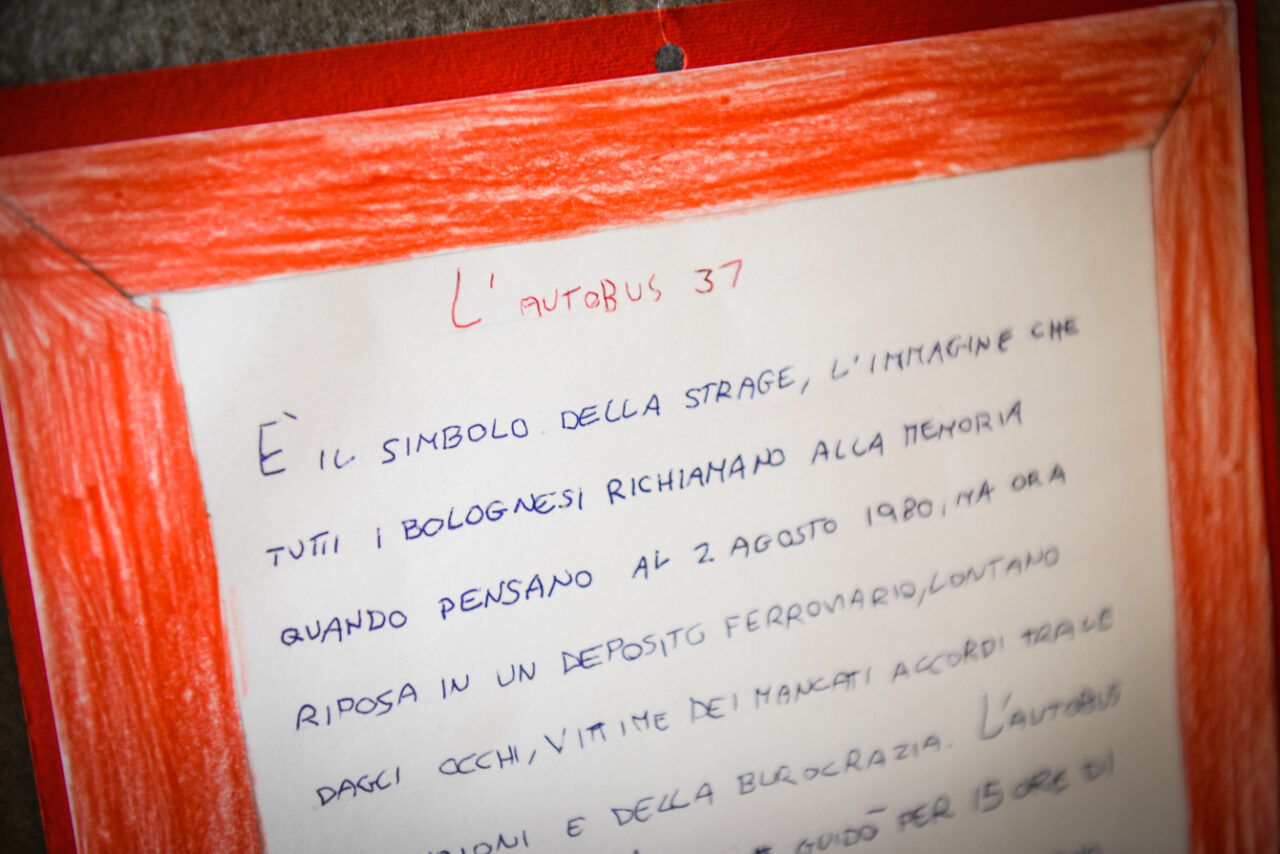 L'AUTOBUS 37
È IL SIMBOLO DELLA STRAGE, L'IMMAGINE CHE
TUTTI I BOLOGNESI RICHIAMANO ALLA MEMORIA
QUANDO PENSANO AL 2 AGOSTO 1980, MA ORA
RIPOSA IN UN DEPOSITO FERROVIARIO, LONTANO
DAGLI OCCHI, VITTIME DEI MANCATI ACCORDI TRA LE
E DELLA BUROCRAZIA. L'AUTOBUS
GUIDÒ PER 15 ORE DI